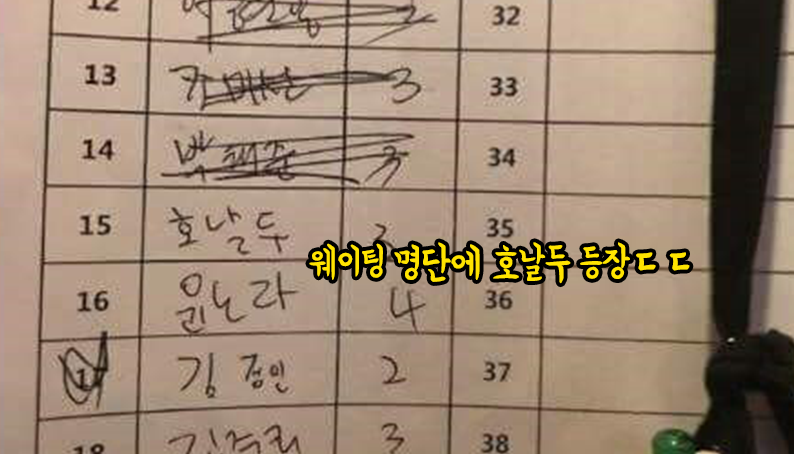 12 2 32
13 3 33
14 3 34
15 호날두 2 35
웨이팅 명단에 호날두 등장ㄷㄷ
16 윤노라 4 36
17 김정인 2 37
18 3 38